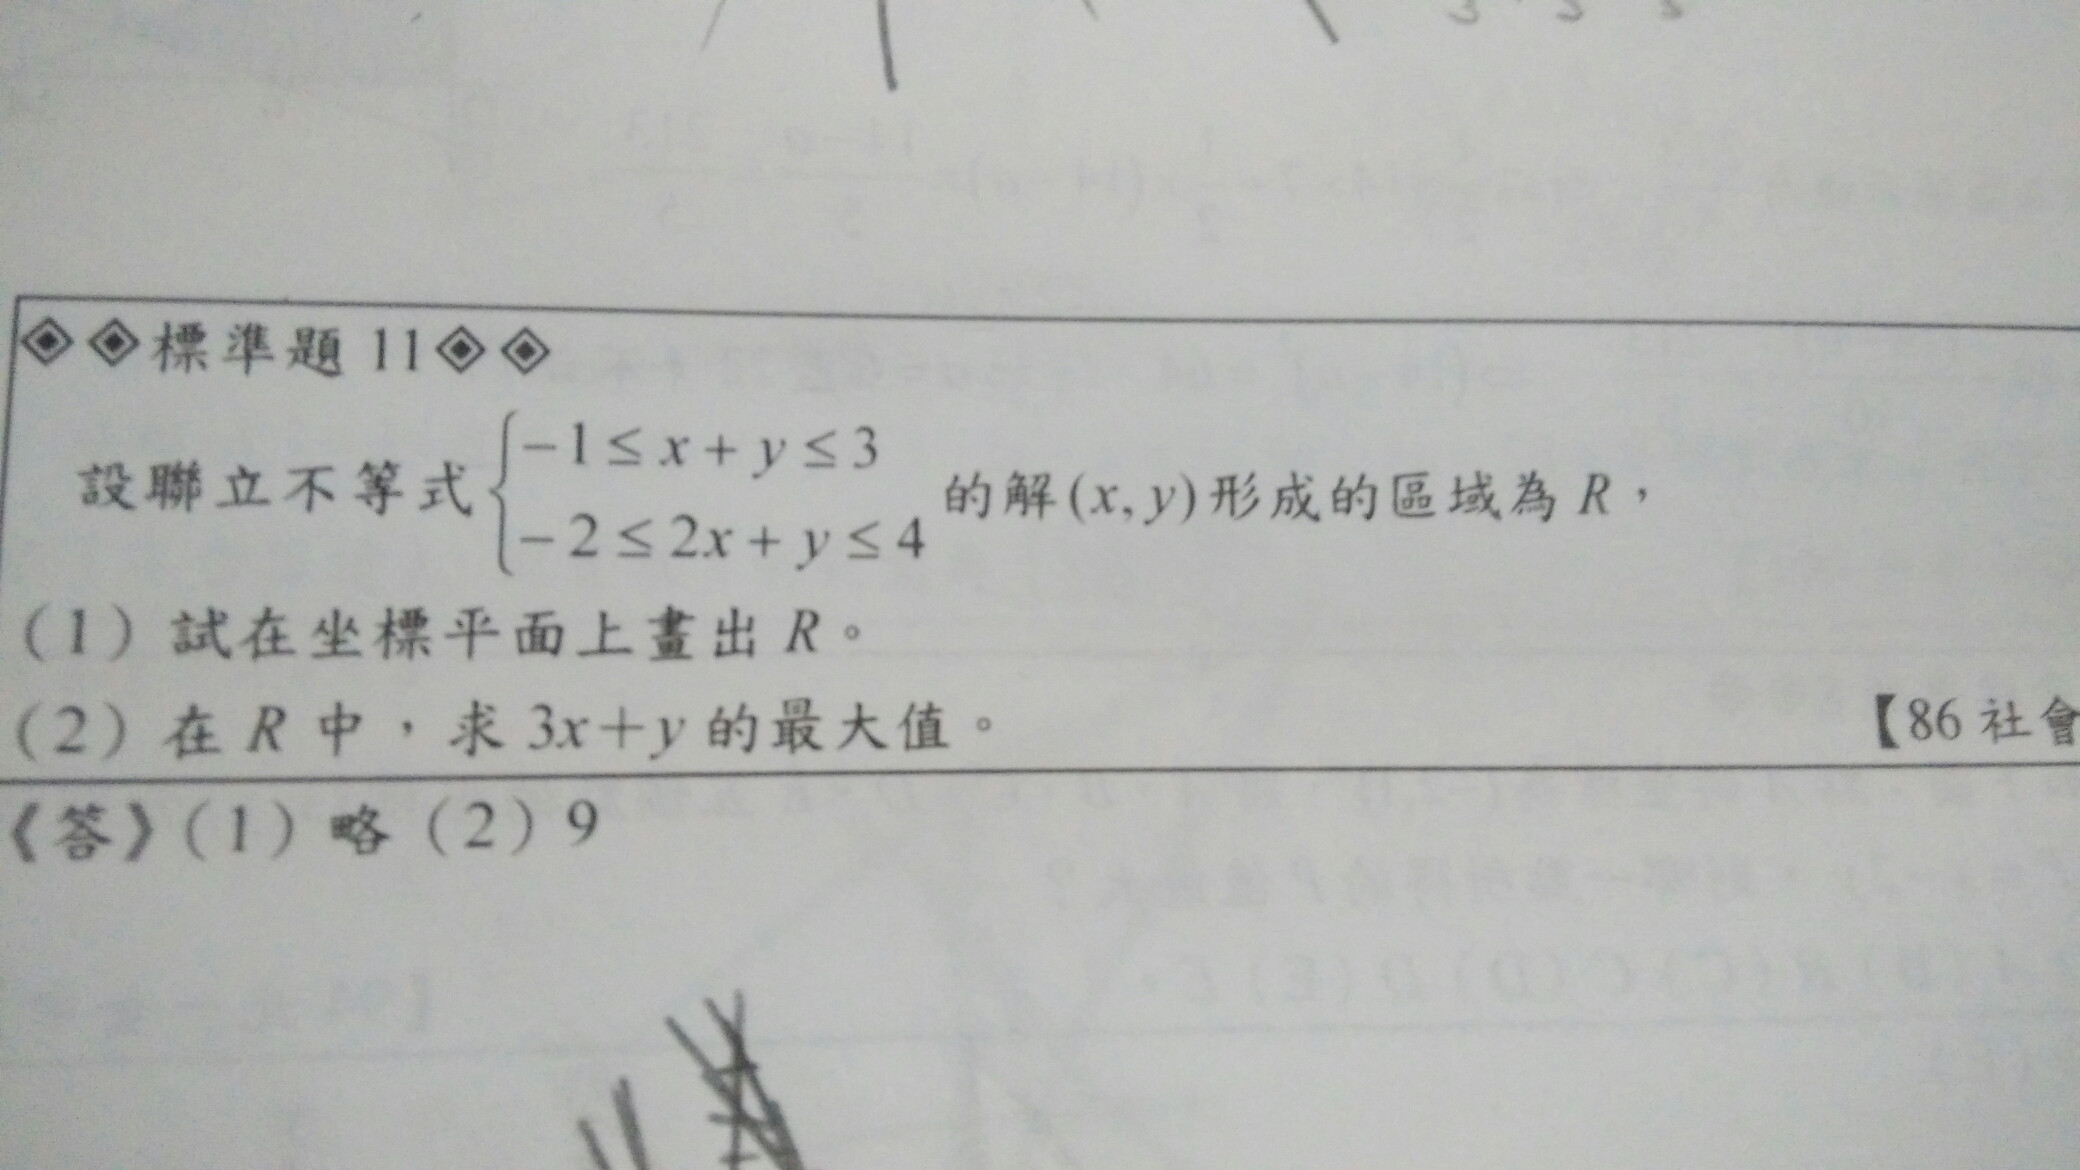 ◈◈標準題 11◈◈
設聯立不等式 { −1 ≤ x + y ≤ 3
−2 ≤ 2x + y ≤ 4 的解 (x, y) 形成的區域為 R，
（1）試在坐標平面上畫出 R。
（2）在 R 中，求 3x＋y 的最大值。 【86 社會
《答》（1）略（2）9